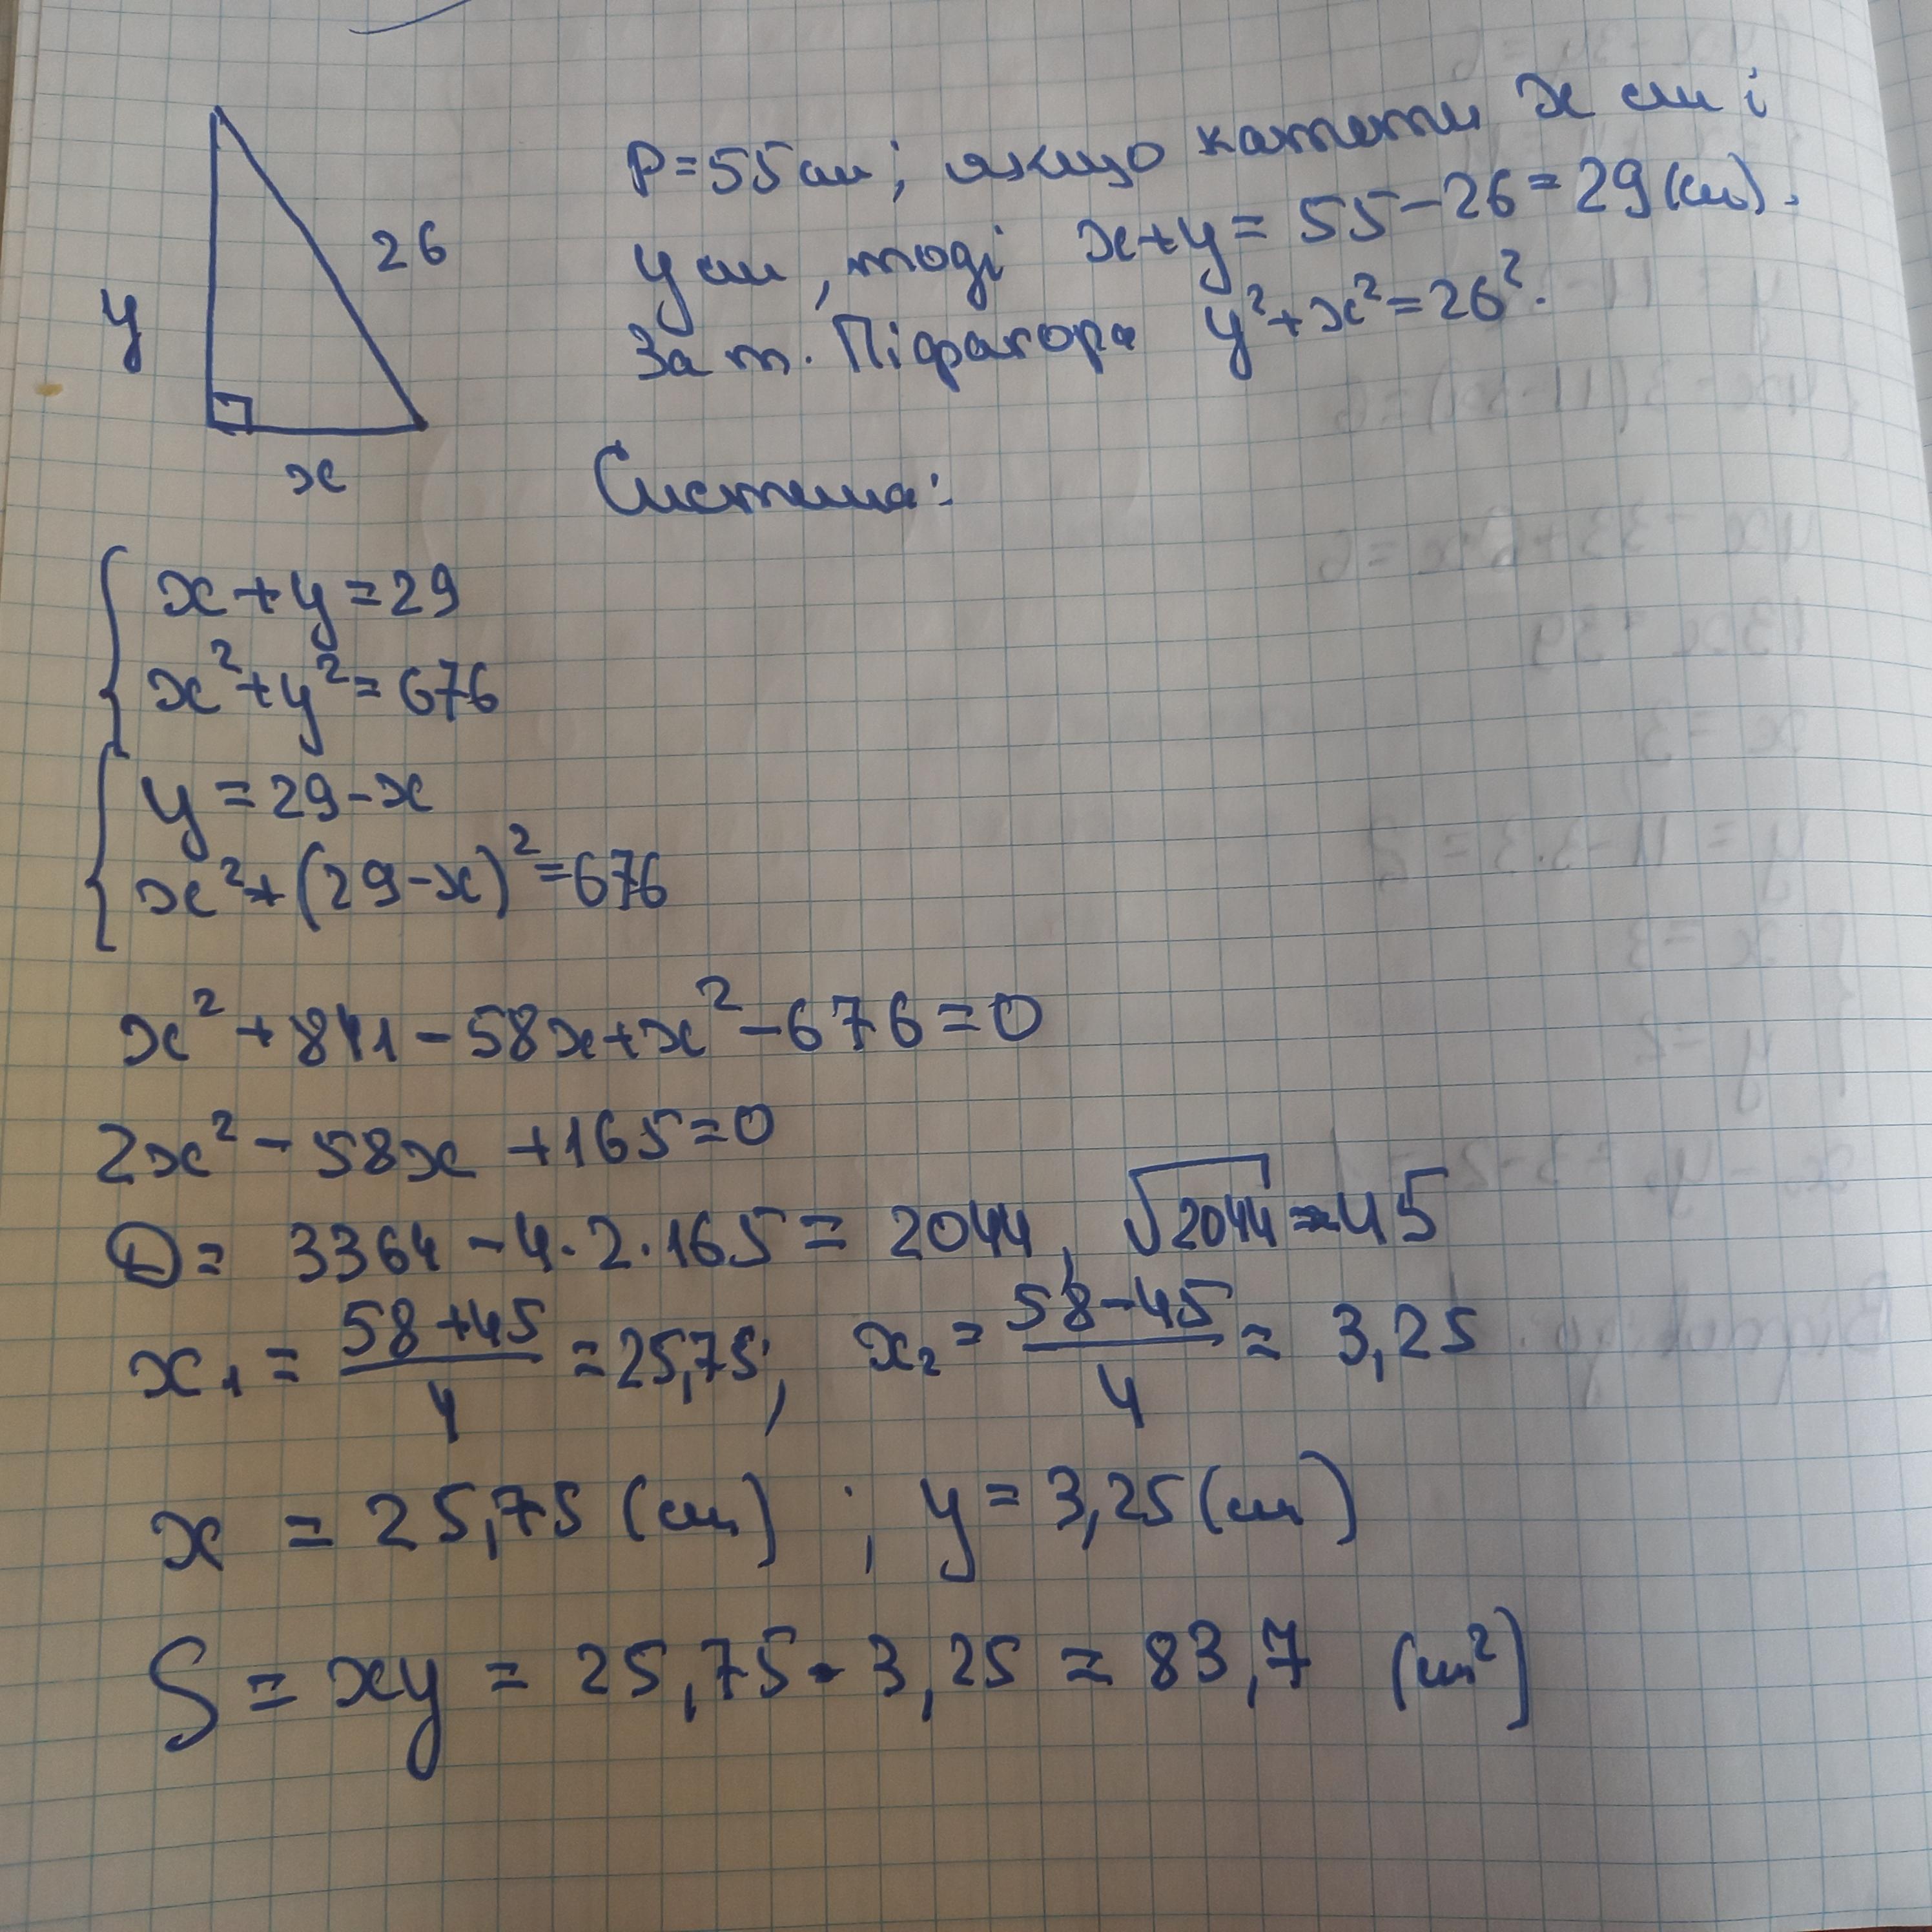 P=55см; якщо катети x см і
y см, тоді x+y=55-26=29(см).
За т. Піфагора y²+x²=26².
26
y
x
Система:
x+y=29
x²+y²=676
y=29-x
x²+(29-x)²=676
x²+841-58x+x²-676=0
2x²-58x+165=0
D=3364-4·2·165=2044, √2044≈45
x₁=(58+45)/4=25,75; x₂=(58-45)/4=3,25
x=25,75(см); y=3,25(см)
S=xy=25,75·3,25≈83,7 (см²)